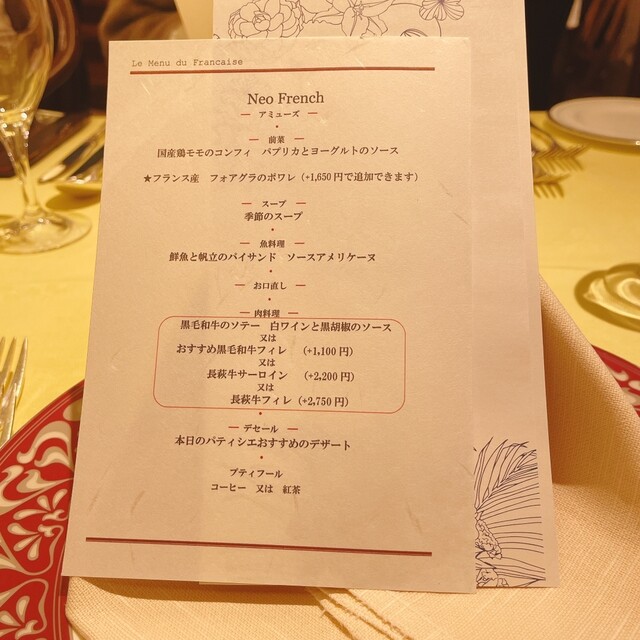 Le Menu du Francaise
Neo French
― アミューズ ―
― 前菜 ―
国産鶏モモのコンフィ　パプリカとヨーグルトのソース
★フランス産　フォアグラのポワレ（+1,650円で追加できます）
― スープ ―
季節のスープ
― 魚料理 ―
鮮魚と帆立のパイサンド　ソースアメリケーヌ
― お口直し ―
― 肉料理 ―
黒毛和牛のソテー　白ワインと黒胡椒のソース
又は
おすすめ黒毛和牛フィレ　（+1,100円）
又は
長萩牛サーロイン　（+2,200円）
又は
長萩牛フィレ（+2,750円）
― デセール ―
本日のパティシエおすすめのデザート
プティフール
コーヒー　又は　紅茶